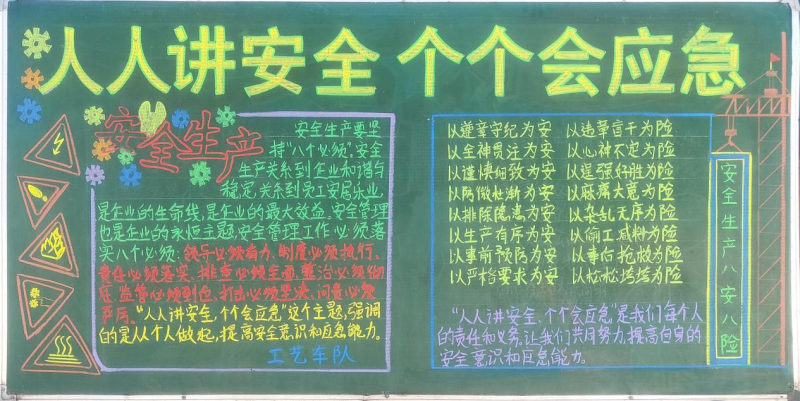 人人讲安全 个个会应急
安全生产
安全生产要坚
持“八个必须”,安全
生产关系到企业和谐与
稳定,关系到员工安居乐业,
是企业的生命线,是企业的最大效益,安全管理
也是企业的永恒主题,安全管理工作必须落
实八个必须:领导必须有力,制度必须执行、
责任必须落实,排查必须全面,整治必须彻
底,监管必须到位,打击必须坚决,问责必须
严厉。“人人讲安全,个个会应急”这个主题,强调
的是从个人做起,提高安全意识和应急能力。
工艺车队
以遵章守纪为安 以违章盲干为险
以全神贯注为安 以心神不定为险
以谨慎细致为安 以逞强好胜为险
以防微杜渐为安 以麻痹大意为险
以排除隐患为安 以杂乱无序为险
以生产有序为安 以偷工减料为险
以事前预防为安 以事后抢救为险
以严格要求为安 以松松垮垮为险
“人人讲安全,个个会应急”是我们每个人
的责任和义务。让我们共同努力,提高自身的
安全意识和应急能力。
安全生产八安八险